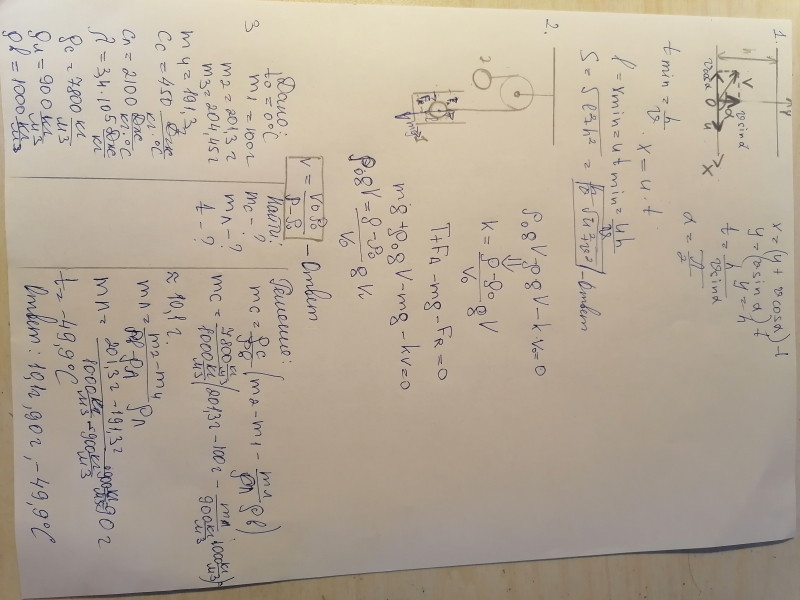 1.
h
y
V
vsinα
vcosα
0
u
x
x=(u+vcosα)·t
y=(vsinα)t
t=h/(vsinα) y=h
α=π/2
t min = h/v
x=u·t
l=xmin=ut min=uh/v
S=√(l²+h²)= - Ответ
2.
ρ₀gV-ρgV-kV₀=0
k=(ρ-ρ₀)/V₀ gV
T+FA-mg-FR=0
mg+ρ₀gV-mg-kV=0
ρ₀gV=(ρ-ρ₀)/V₀ gV
V=V₀ρ₀/(ρ-ρ₀) - Ответ
3
Дано:
t₀=0°C
m1=100г
m2=201,3г
m3=204,4г
m4=191,3
Cc=450 Дж/кг·°C
Cл=2100 Дж/кг·°C
λ=3,4·10⁵ Дж/кг
ρc=7800 кг/м3
ρл=900 кг/м3
ρв=1000 кг/м3
Найти:
mc-?
mл-?
t-?
Решение:
mc=ρc/ρв(m2-m1-mл/ρл ρв)
mc=7800кг/м3/1000кг/м3(201,3г-100г-mл/900кг/м3·1000кг/м3)≈
≈10,1г
mл=(m2-m4)/(ρв-ρл) ρл
mл=(201,3г-191,3г)/(1000кг/м3-900кг/м3)·900кг/м3=90г
t=-49,9°C
Ответ: 10,1г, 90г, -49,9°C